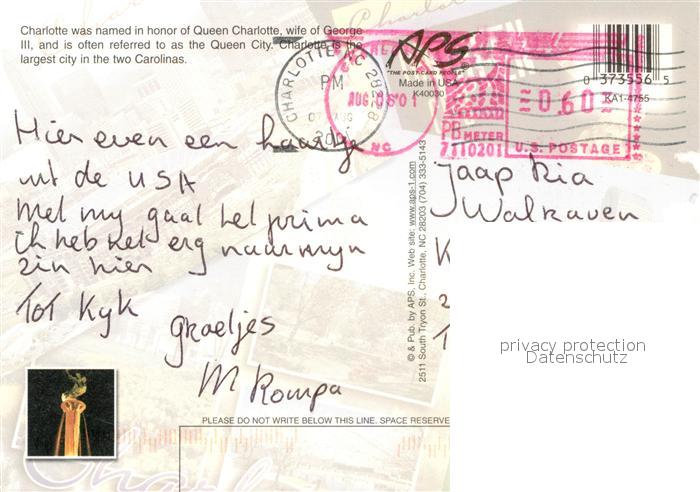 Charlotte was named in honor of Queen Charlotte, wife of George
III, and is often referred to as the Queen City. Charlotte is the
largest city in the two Carolinas.
CHARLOTTE NC 282
PM
AUG
2001
AUG 08'01
NC
APS
"THE POST CARD PEOPLE"
Made in USA
K40030
0 373556 5
KA1-4755
0.60
PB METER
7110201
U.S. POSTAGE
Hier even een kaartje
uit de USA
Met my gaat het prima
ik heb het erg naar myn
zin hier
Tot Kyk
groetjes
M Rompa
Jaap Ria
Walraven
K
T
© & Pub. by APS, Inc. Web site: www.aps-1.com
2511 South Tryon St., Charlotte, NC 28203 (704) 333-5143
privacy protection
Datenschutz
PLEASE DO NOT WRITE BELOW THIS LINE. SPACE RESERVE